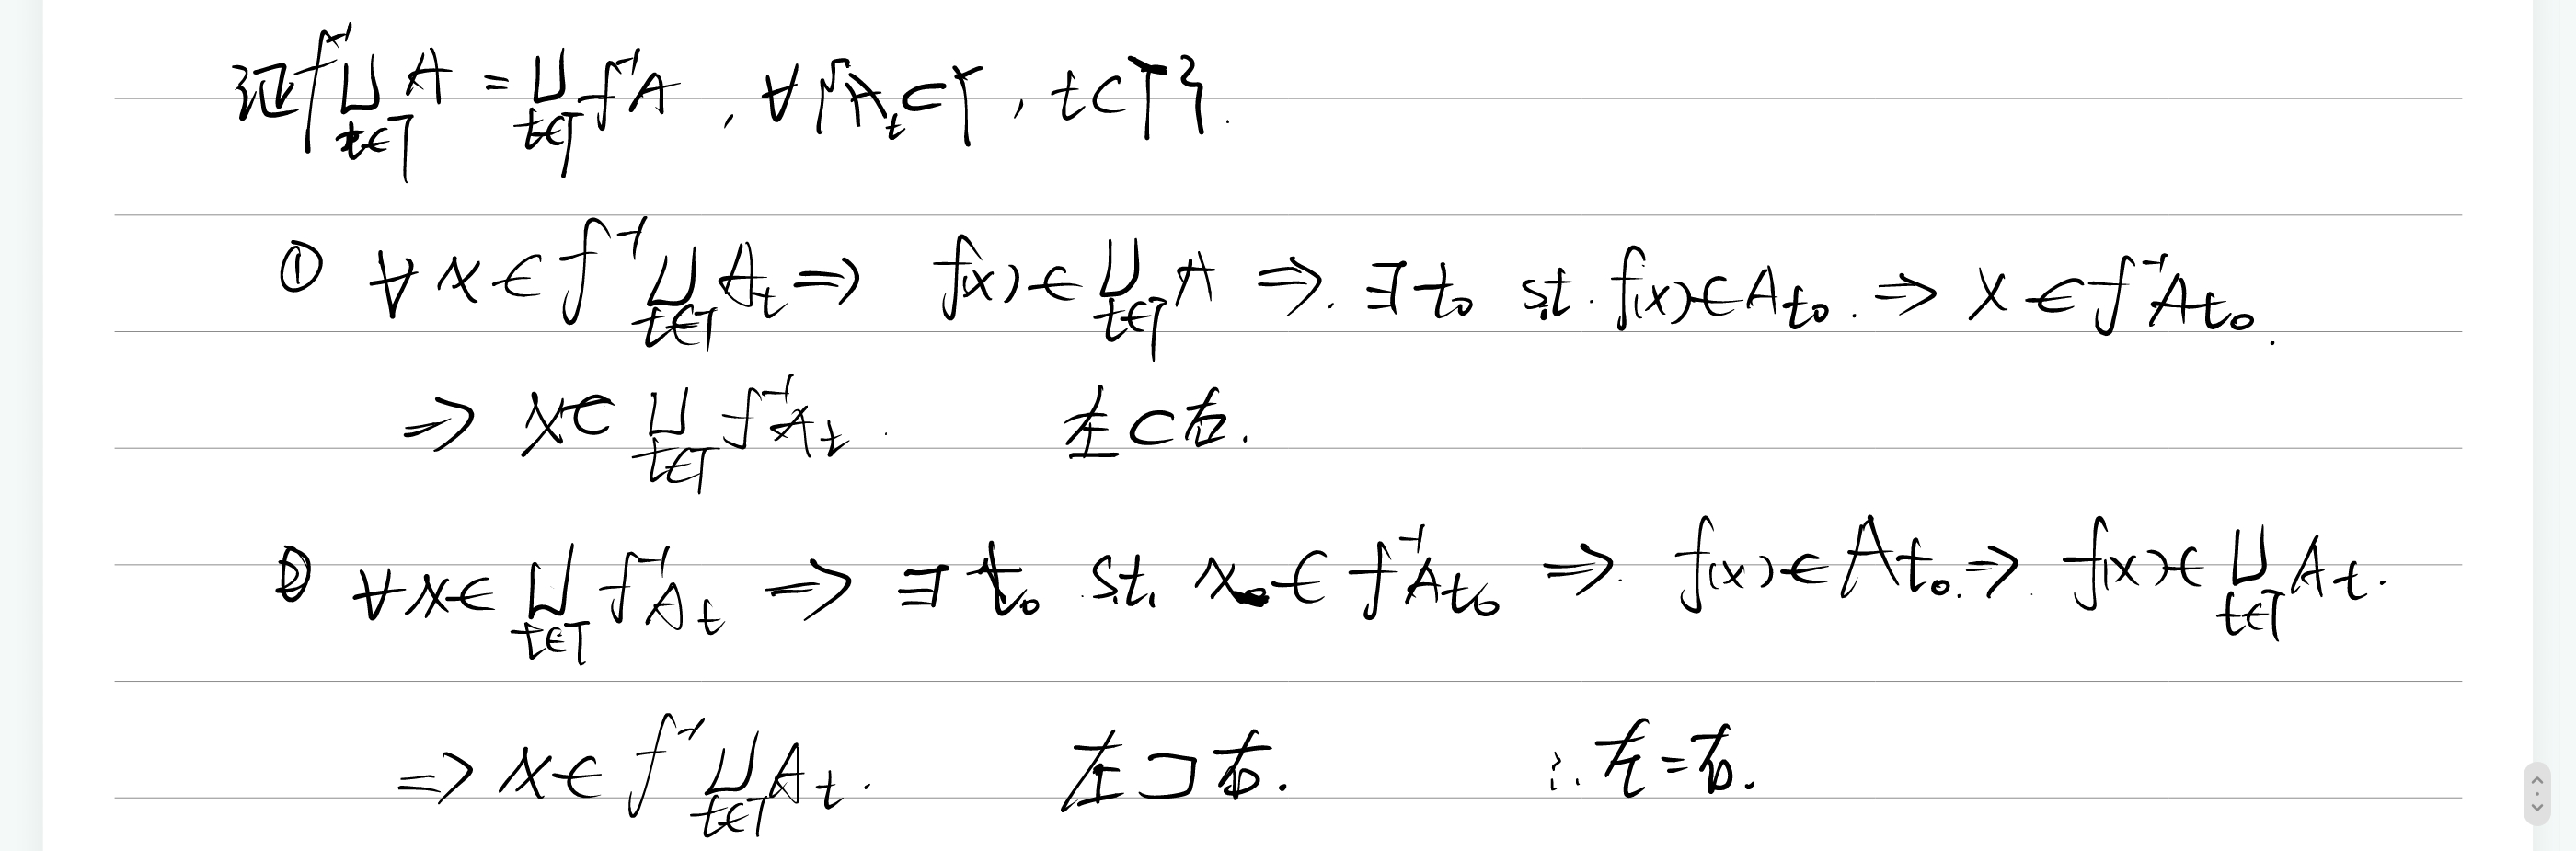 证 f⁻¹ ⋃_{t∈T} A = ⋃_{t∈T} f⁻¹A , ∀{A_t⊂Y, t⊂T}.
① ∀x∈f⁻¹ ⋃_{t∈T} A_t ⇒ f(x)∈⋃_{t∈T} A ⇒. ∃t₀ st. f(x)∈A_{t₀}. ⇒ x∈f⁻¹A_{t₀}.
⇒ x∈⋃_{t∈T} f⁻¹A_t. 左⊂右.
② ∀x∈⋃_{t∈T} f⁻¹A_t ⇒ ∃t₀ s.t. x∈f⁻¹A_{t₀} ⇒. f(x)∈A_{t₀}.⇒ f(x)∈⋃_{t∈T} A_t.
⇒ x∈f⁻¹ ⋃_{t∈T} A_t. 左⊃右. ∴左=右.